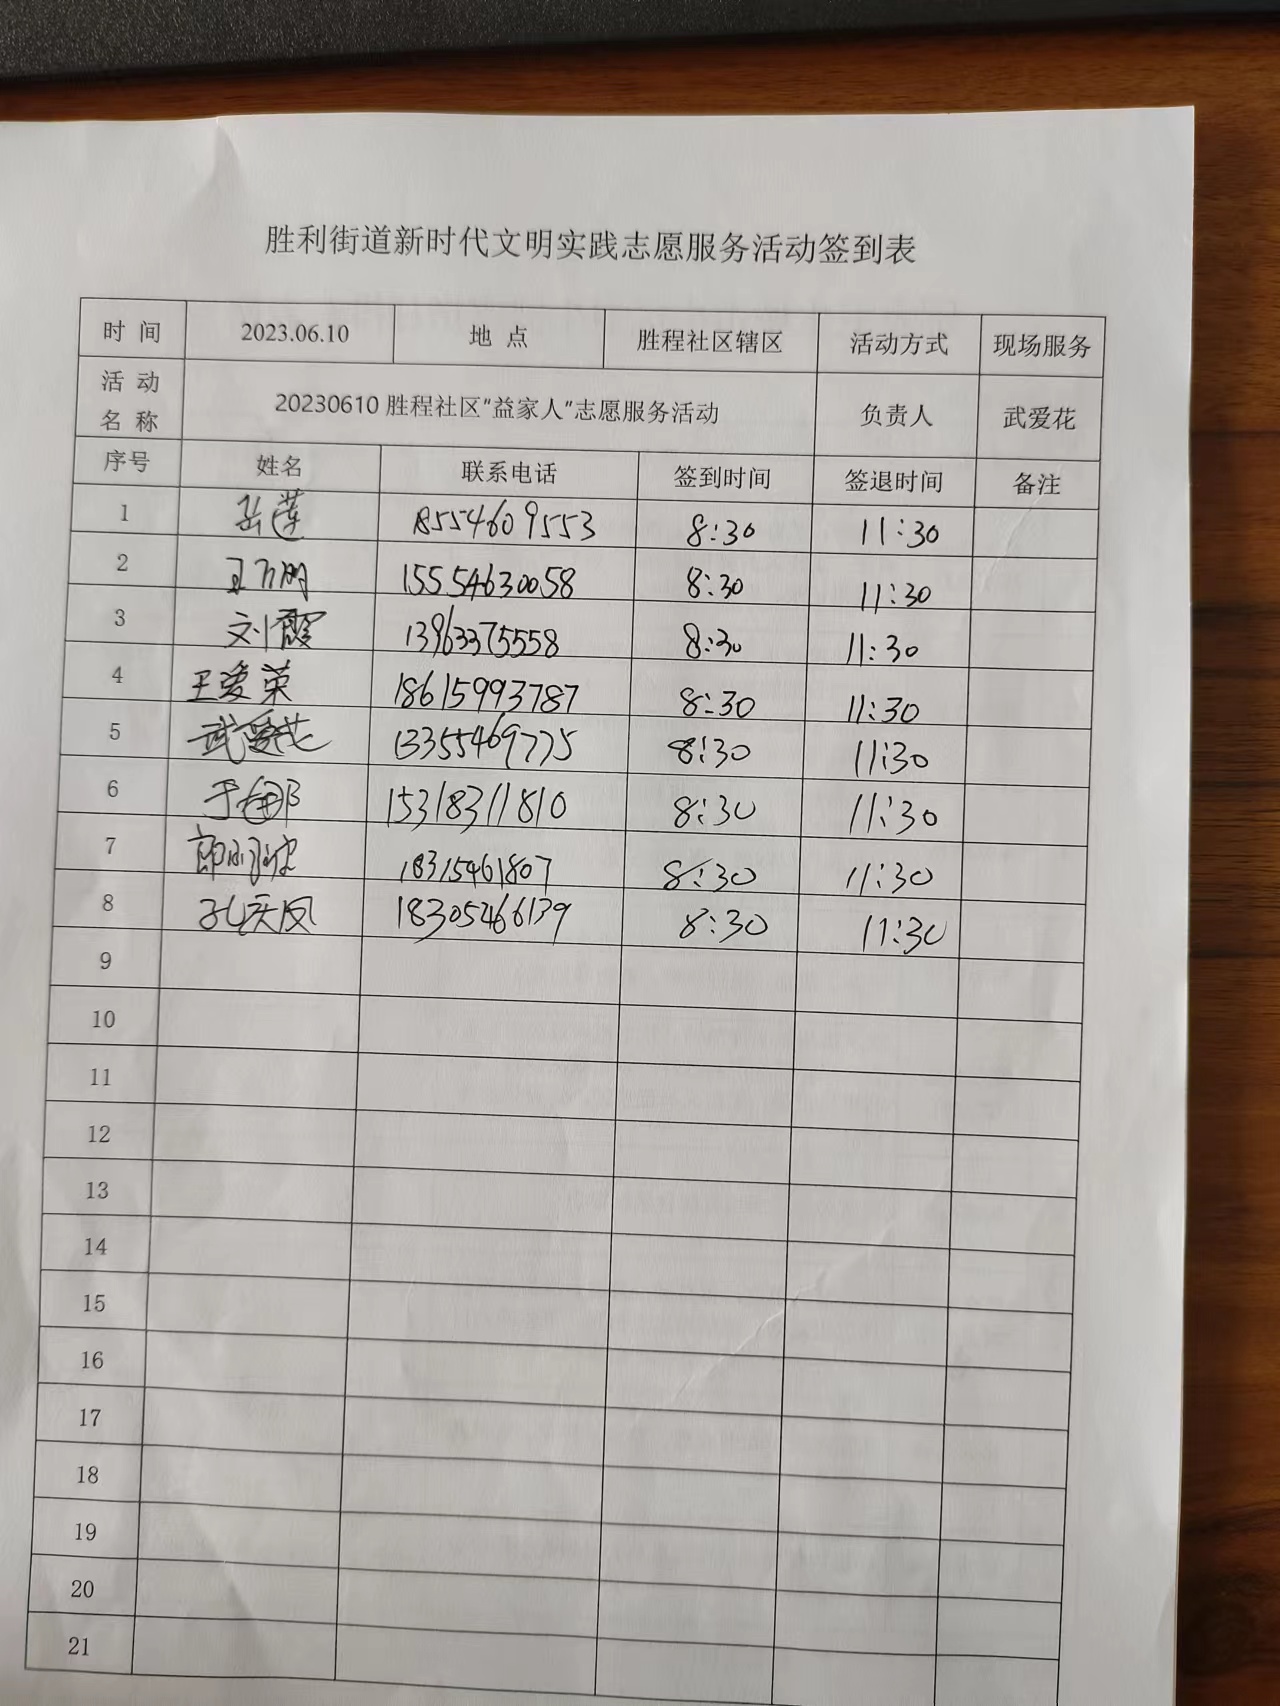 胜利街道新时代文明实践志愿服务活动签到表
时 间 2023.06.10 地 点 胜程社区辖区 活动方式 现场服务
活 动 名 称 20230610 胜程社区"益家人"志愿服务活动 负责人 武爱花
序号 姓名 联系电话 签到时间 签退时间 备注
1 岳莲 18554609553 8:30 11:30
2 15554630058 8:30 11:30
3 刘霞 13963375558 8:30 11:30
4 王爱荣 18615993787 8:30 11:30
5 武爱花 13355469775 8:30 11:30
6 于娜 15318311810 8:30 11:30
7 18315461807 8:30 11:30
8 孔庆凤 18305466139 8:30 11:30
9
10
11
12
13
14
15
16
17
18
19
20
21